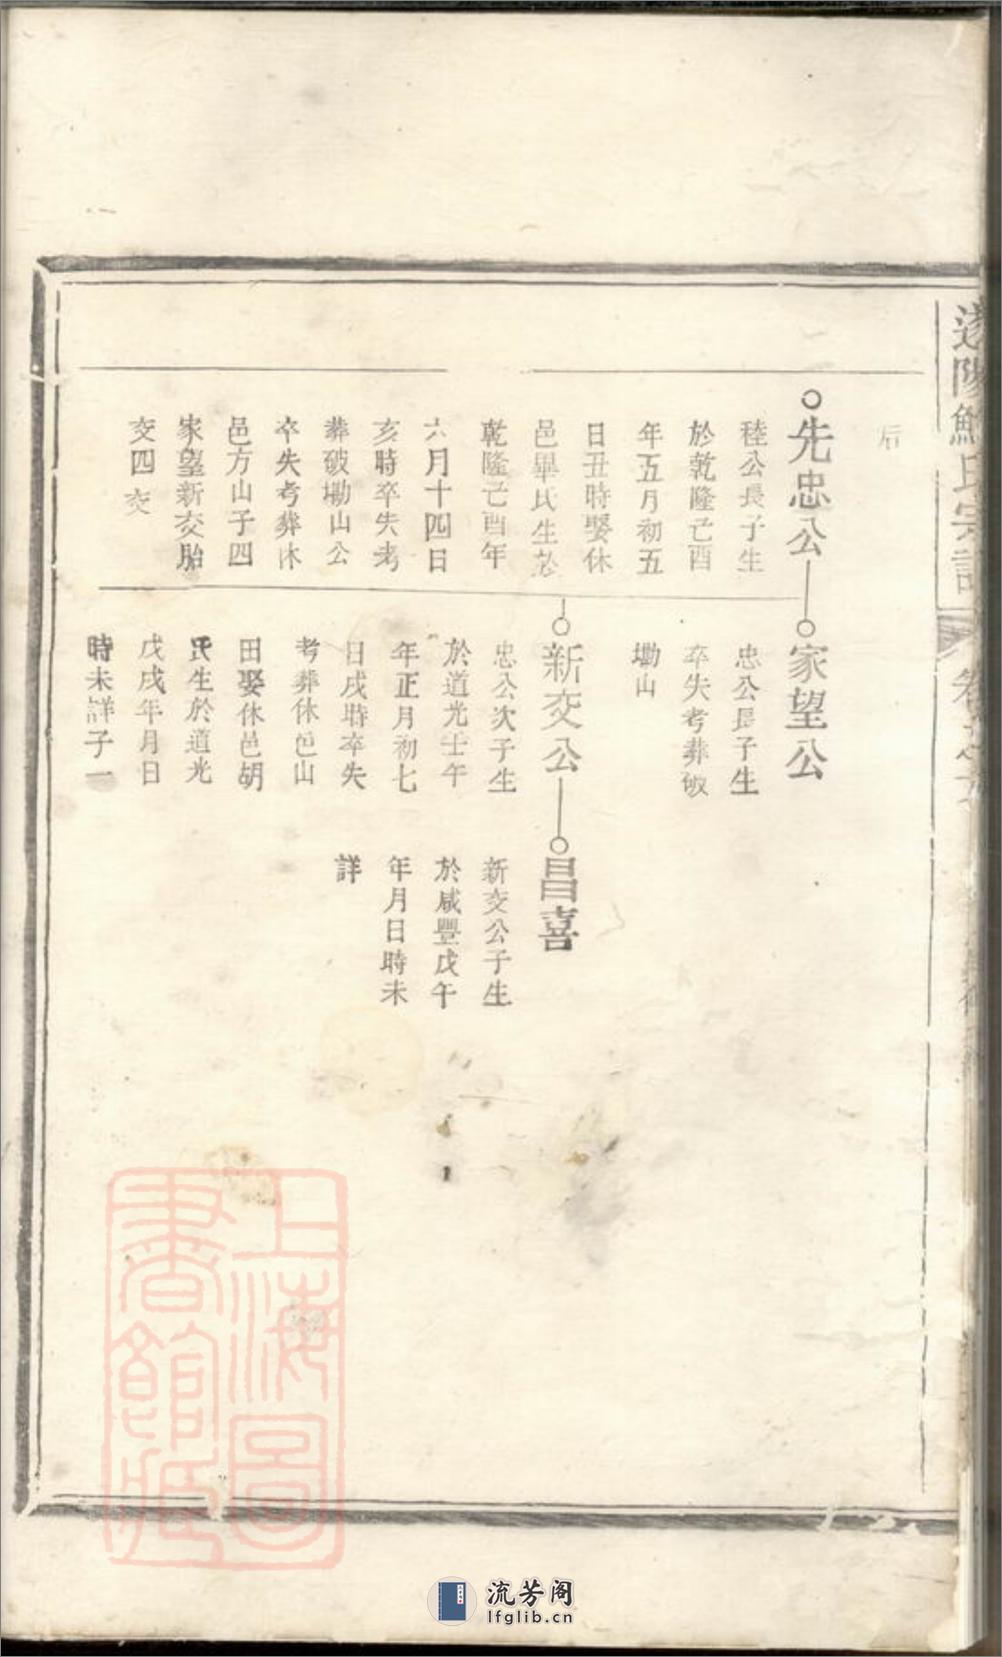 后
先忠公
稑公長子生
於乾隆己酉
年五月初五
日丑時娶休
邑畢氏生於
乾隆己酉年
六月十四日
亥時卒失考
葬破塝山公
卒失考葬休
邑方山子四
家望新交胎
交四交
家望公
忠公長子生
卒失考葬破
塝山
新交公
忠公次子生
於道光壬午
年正月初七
日戌時卒失
考葬休邑山
田娶休邑胡
氏生於道光
戊戌年月日
時未詳子一
昌喜
新交公子生
於咸豐戊午
年月日時未
詳
上海圖
書館藏
流芳阁
lfglib.cn